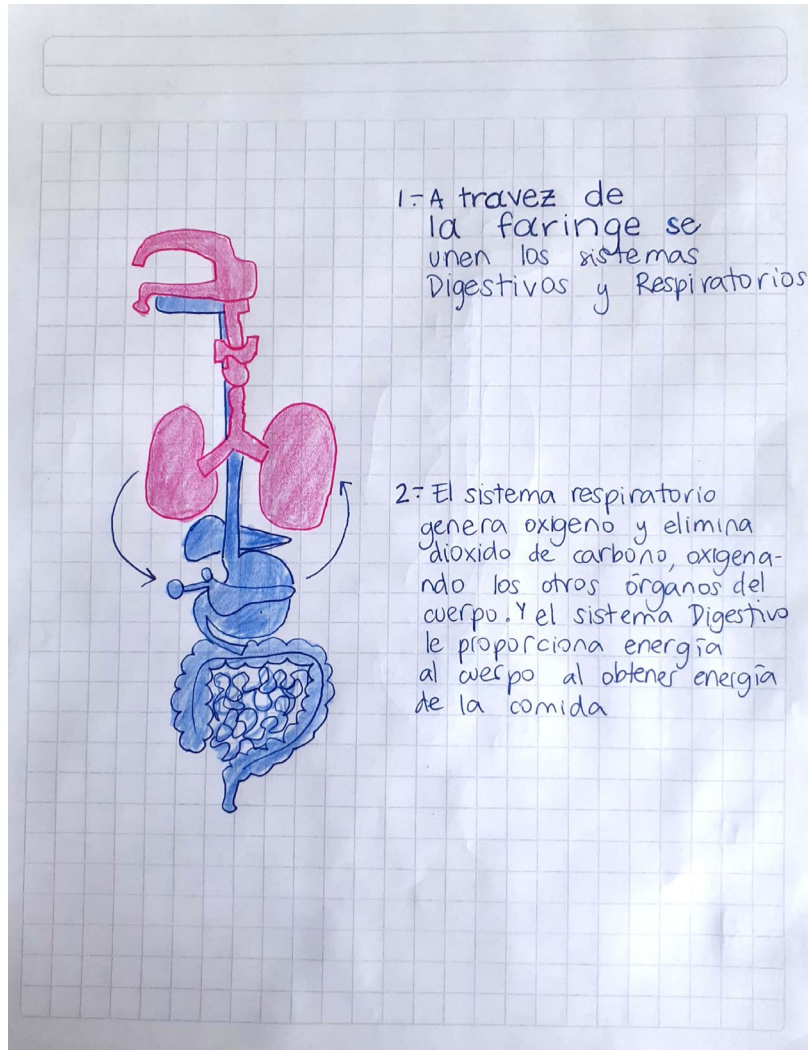 1.- A travez de
la faringe se
unen los sistemas
Digestivos y Respiratorios
2.- El sistema respiratorio
genera oxigeno y elimina
dioxido de carbono, oxigena-
ndo los otros órganos del
cuerpo. Y el sistema Digestivo
le proporciona energía
al cuerpo al obtener energía
de la comida